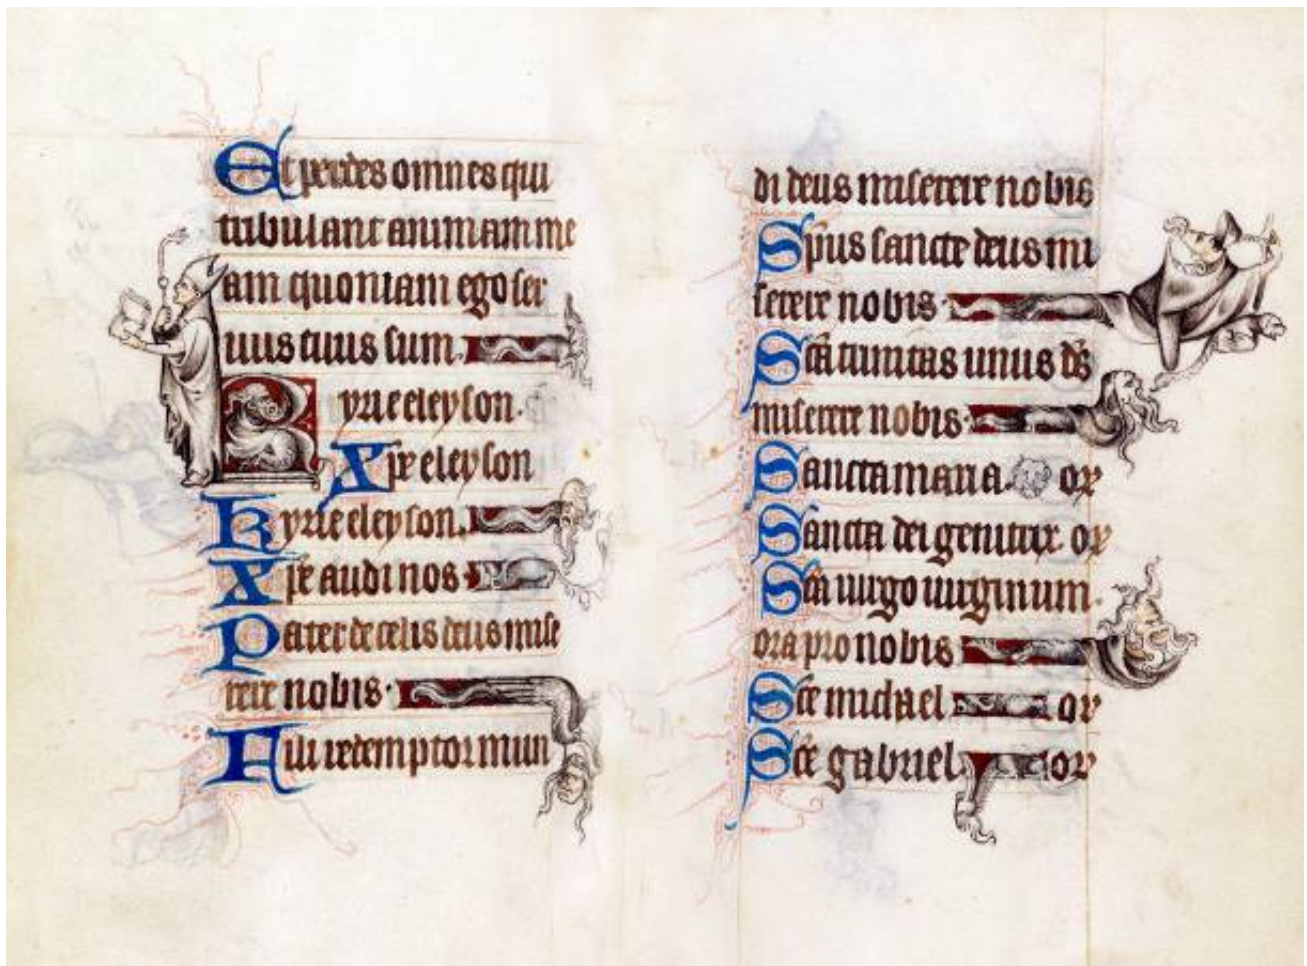 Et perdes omnes qui
tribulant animam me
am quoniam ego ser
uus tuus sum.
Kyrie eleyson.
Xpe eleyson
Kyrie eleyson.
Xpe audi nos.
Pater de celis deus mise
rere nobis.
Fili redemptor mun
di deus miserere nobis
Spus sancte deus mi
serere nobis.
Sca trinitas unus ds
miserere nobis.
Sancta maria. or
Sancta dei genitrix. or
Sca uirgo uirginum.
ora pro nobis
Sce michael or
Sce gabriel. or